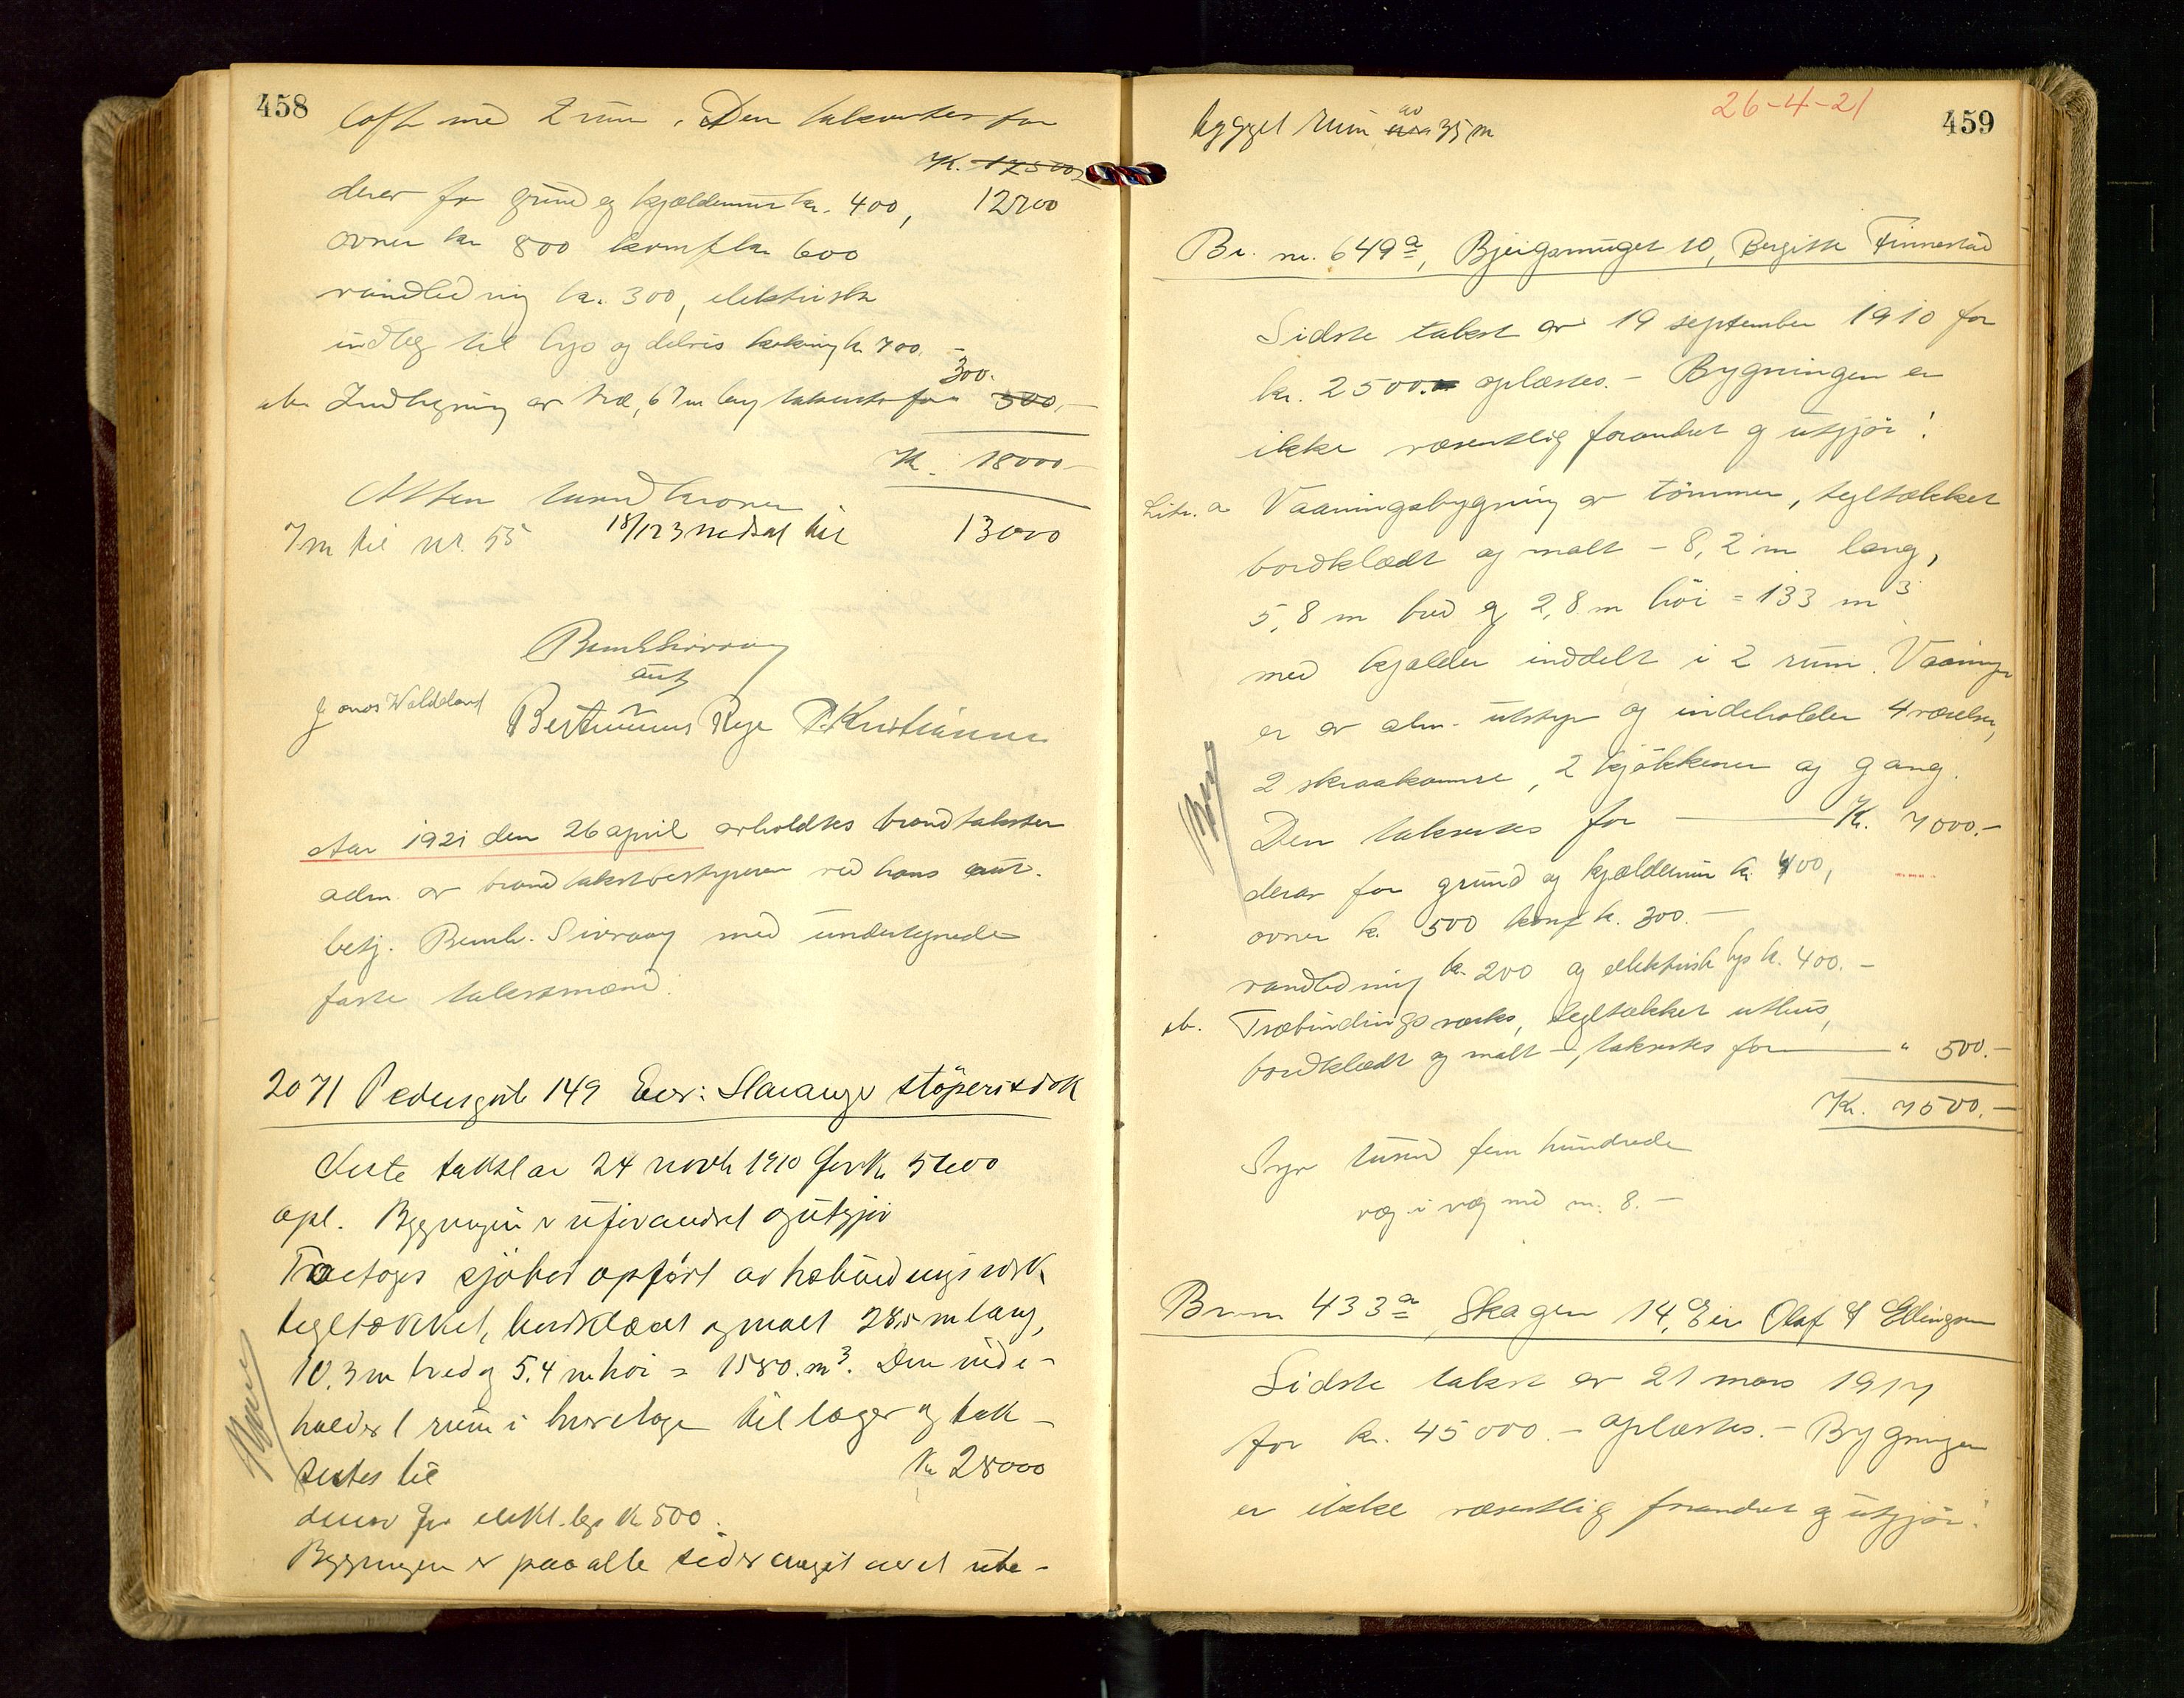 458
loft med 2 rum. Den taksertes for
Kr. 17500
derav for grund og kjældermur kr. 400, 12700
ovner kr 800 komf kr 600
vandledning kr. 300, elektrisk
indlæg til lys og delvis kokning kr 700.-
300.
Indhegning av træ, 67 m lang taksertes for 500,-
Kr. 18000-
Atten tusend kroner
7 m til nr. 55 18/123 nedsat til 13000
Bernh Sivraaig
aut
Jonas Waldeland P. Kristiansen
Aar 1921 den 26 april avholdtes brandtakster
adm. av brandtakstbestyreren ved hans aut.
betj. Bernh. Sivraaig med undertegnede
faste takstmænd.
2071 Pedersgate 149 Eier: Stavanger støperi & dok
Siste takst av 24 novb 1910 for kr 5600
opl. Bygningen er uforandret og utgjør
Toetages sjøhus opført av træbindingsverk
tegltækket, bordklædt og malt 28,5 m lang,
10.3 m bred og 5.4 m høi = 1580. m³. Den inde-
holder 1 rum i hver etage til lager og tak-
sertes til Kr 28000
derav for elekt. lys kr 500.
Bygningen er paa alle sider omgit av et ube-
26-4-21
459
bygget rum av 35 m
Br. nr. 649 a, Bjergsmuget 10, Bergitte Finnestad
Sidste takst av 19 september 1910 for
kr. 2500. oplæstes. - Bygningen er
ikke væsentlig forandret og utgjør:
Litr. a Vaaningsbygning av tømmer, tegltækket
bordklædt og malt - 8,2 m lang,
5,8 m bred og 2,8 m høi = 133 m³
med kjælder inddelt i 2 rum. Vaaningen
er av alm. utstyr og indeholder 4 værelser,
2 skraakamre, 2 kjøkkener og gang.
Den taksertes for Kr. 7000.-
derav for grund og kjældermur kr. 400,
ovner kr. 500 komf kr. 300.-
vandledning kr. 200 og elektrisk lys kr. 400.-
b. Træbindingsverks, tegltækket uthus,
bordklædt og malt -, taksertes for " 500.-
Kr. 7500.-
Syv tusend fem hundrede
væg i væg med nr. 8.-
Br nr 433 a, Skagen 14, Eier Olaf Ellingsen
Sidste takst av 21 mars 1917
for kr. 45000.- oplæstes.- Bygningen
er ikke væsentlig forandret og utgjør: